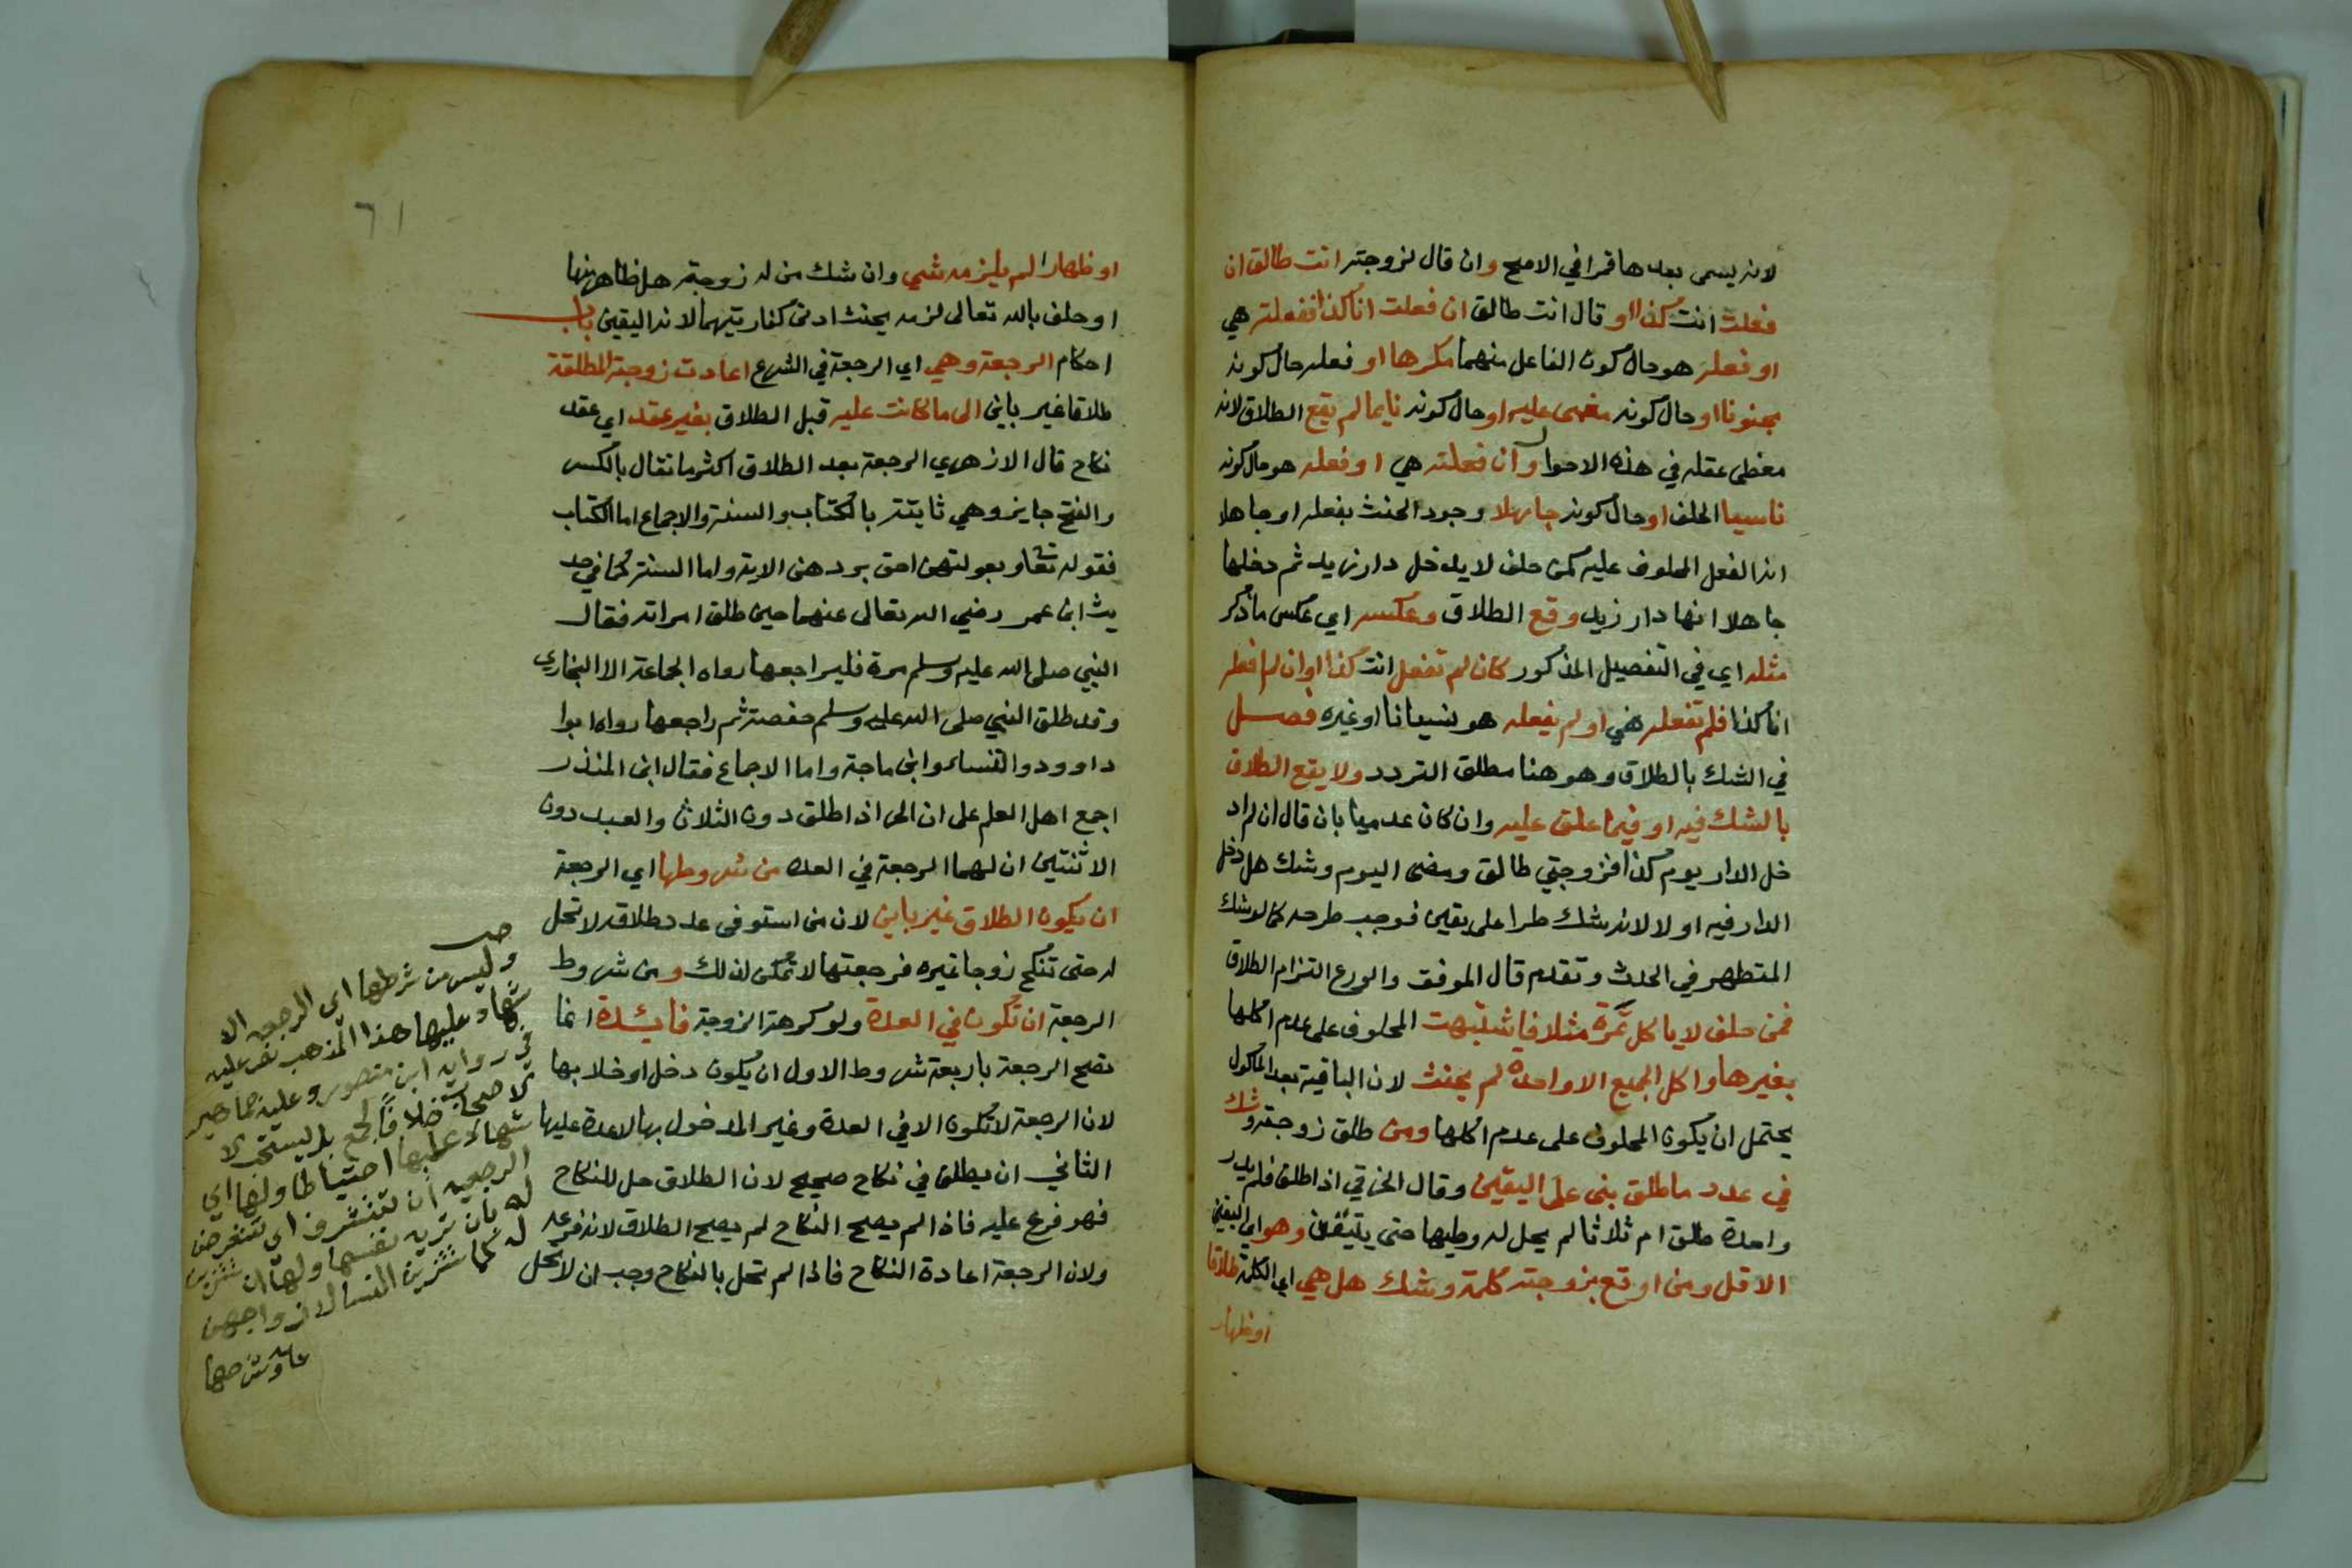 لانه يسمى بعدها قمرا في الاصح وان قال لزوجته انت طالق ان
فعلت انت كذا او قال انت طالق ان فعلت انا كذا ففعلته هي
او فعله هو حال كون الفاعل منهما مكرها او فعله حال كونه
مجنونا او حال كونه مغمى عليه او حال كونه نايما لم يقع الطلاق لانه
مغطى عقله في هذه الاحوال وان فعلته هي او فعله هو حال كونه
ناسيا الحلف او حال كونه جاهلا وجود الحنث بفعله او جاهلا
انه الفعل المحلوف عليه كمن حلف لا يدخل دار زيد ثم دخلها
جاهلا انها دار زيد وقع الطلاق وعكسه اي عكس ما ذكر
مثله اي في التفصيل المذكور كان لم تفعل انت كذا او ان لم افعل
انا كذا فلم تفعله هي او لم يفعله هو نسيانا او غيره فصل
في الشك بالطلاق وهو هنا مطلق التردد ولا يقع الطلاق
بالشك فيه او فيما علق عليه وان كان عدميا بان قال ان لم اد
خل الدار يوم كذا فزوجتي طالق ومضى اليوم وشك هل دخل
الدار فيه او لا لانه شك طرا على يقين فوجب طرحه كما لو شك
المتطهر في الحدث وتقدم قال الموفق والورع التزام الطلاق
فمن حلف لا ياكل تمرة مثلا فاشتبهت المحلوف على عدم اكلها
بغيرها واكل الجميع الا واحدة لم يحنث لان الباقية بعد الماكول
يحتمل ان يكون المحلوف على عدم اكلها ومن طلق زوجته وشك
في عدد ما طلق بنى على اليقين وقال الخرقي اذا طلق فلم يدر
واحدة طلق ام ثلاثا لم يحل له وطيها حتى يتيقن وهو اي اليقين
الاقل ومن اوقع بزوجته كلمة وشك هل هي اي الكلمة طلاقا
او ظهار
٦١
او ظهارا لم يلزمه شي وان شك من له زوجة هل ظاهر منها
او حلف بالله تعالى لزمه بحنث ادنى كفارتيهما لانه اليقين باب
احكام الرجعة وهي اي الرجعة في الشرع اعادت زوجته المطلقة
طلاقا غير باين الى ما كانت عليه قبل الطلاق بغير عقد اي عقد
نكاح قال الازهري الرجعة بعد الطلاق اكثر ما تقال بالكسر
والفتح جايز وهي ثابتة بالكتاب والسنة والاجماع اما الكتاب
فقوله تعا وبعولتهن احق بردهن الاية واما السنة كما في حد
يث ابن عمر رضي الله تعالى عنهما حين طلق امراته فقال
النبي صلى الله عليه وسلم مره فليراجعها رواه الجماعة الا البخاري
وقد طلق النبي صلى الله عليه وسلم حفصة ثم راجعها رواه ابوا
داوود والنساء وابن ماجة واما الاجماع فقال ابن المنذر
اجمع اهل العلم على ان الحر اذا طلق دون الثلاث والعبد دون
الاثنتين ان لهما الرجعة في العدة من شروطها اي الرجعة
ان يكون الطلاق غير باين لان من استوفى عدد طلاقه لا تحل
له حتى تنكح زوجا غيره فرجعتها لا تمكن لذلك ومن شروط
الرجعة ان تكون في العدة ولو كرهة الزوجة فائدة انما
تصح الرجعة باربعة شروط الاول ان يكون دخل او خلا بها
لان الرجعة لا تكون الا في العدة وغير المدخول بها لا عدة عليها
الثاني ان يطلق في نكاح صحيح لان الطلاق حل للنكاح
فهو فرع عليه فاذا لم يصح النكاح لم يصح الطلاق لانه فرعه
ولان الرجعة اعادة النكاح فاذا لم تحل بالنكاح وجب ان لا تحل
وليس من شرطها اي الرجعه الا
شهاد عليها هذا المذهب نص عليه
في روايه ابن منصور وعليه جماهير
الاصحاب خلافا لجمع بل يستحب الا
شهاد عليها احتياطا ولها اي
الرجعيه ان تتشرف اي تتعرض
له بان تريه نفسها ولها ان تتزين
له كما تتزين النسا لازواجهن